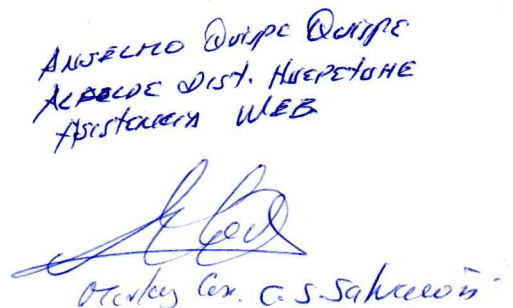 ANSELMO Quispe Quispe
ALCALDE Dist. HUEPETUHE
Asistencia WEB
C.S. Salvación